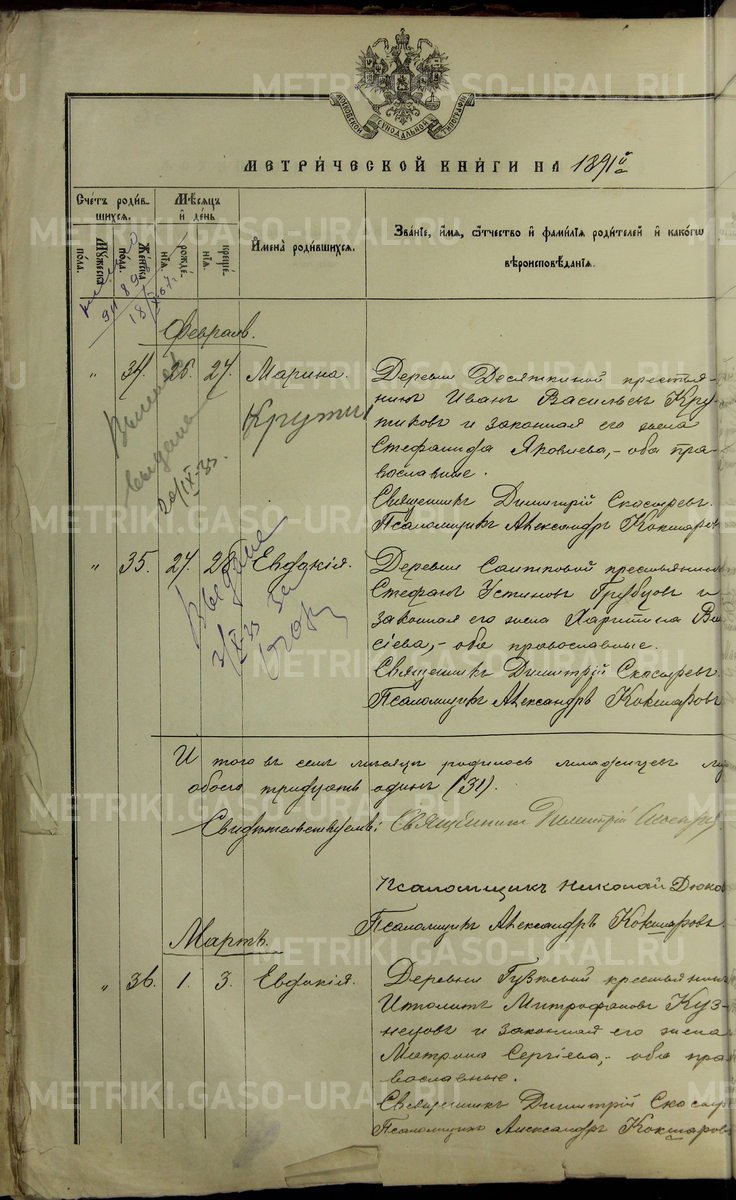 METRIKI.GASO-URAL.RU
МОСКОВСКОЙ СѴНОДАЛЬНОЙ ТИПОГРАФІИ
МЕТРИ́ЧЕСКОЙ КНИ́ГИ НА 1891й
Сче́тъ роди́вшихся.
Мѣсяцъ и҆ де́нь
И҆мена̀ роди́вшихся.
Зва́нїе, и҆́мѧ, ѻ҆́тчество и҆ фами́лїѧ роди́телей и҆ како́гѡ вѣроисповѣ́данїѧ.
Мꙋ́жеска по́ла.
Же́нска по́ла.
рожде́нїѧ.
креще́нїѧ.
Февраль.
" 34. 26. 27. Марина. Деревни Десяткиной крестья-
нинъ Иванъ Васильевъ Кру-
тиковъ и законная его жена
Стефанида Яковлева, - оба пра-
вославные.
Священникъ Димитрій Скосыревъ.
Псаломщикъ Александръ Кокшаров
Крути
выдана
20/IX-33.
" 35. 27. 28. Евдокія. Деревни крестьянинъ
Стефанъ Устиновъ Грубцовъ и
законная его жена Харитина
сіева, - оба православные.
Священникъ Димитрій Скосыревъ.
Псаломщикъ Александръ Кокшаровъ
Выдана
И того въ семъ мѣсяцѣ родилось младенцевъ
обоего тридцать одинъ (31).
Свидѣтельствуемъ: Священникъ Димитрій Скосырев
Псаломщикъ Николай Дюко
Псаломщикъ Александръ Кокшаровъ.
Мартъ.
" 36. 1. 3. Евдокія. Деревни крестьянинъ
Иполитъ Митрофановъ Куз-
нецовъ и законная его жена
Матрона Сергіева, - оба пра-
вославные.
Священникъ Димитрій Скосыр
Псаломщикъ Александръ Кокшаров